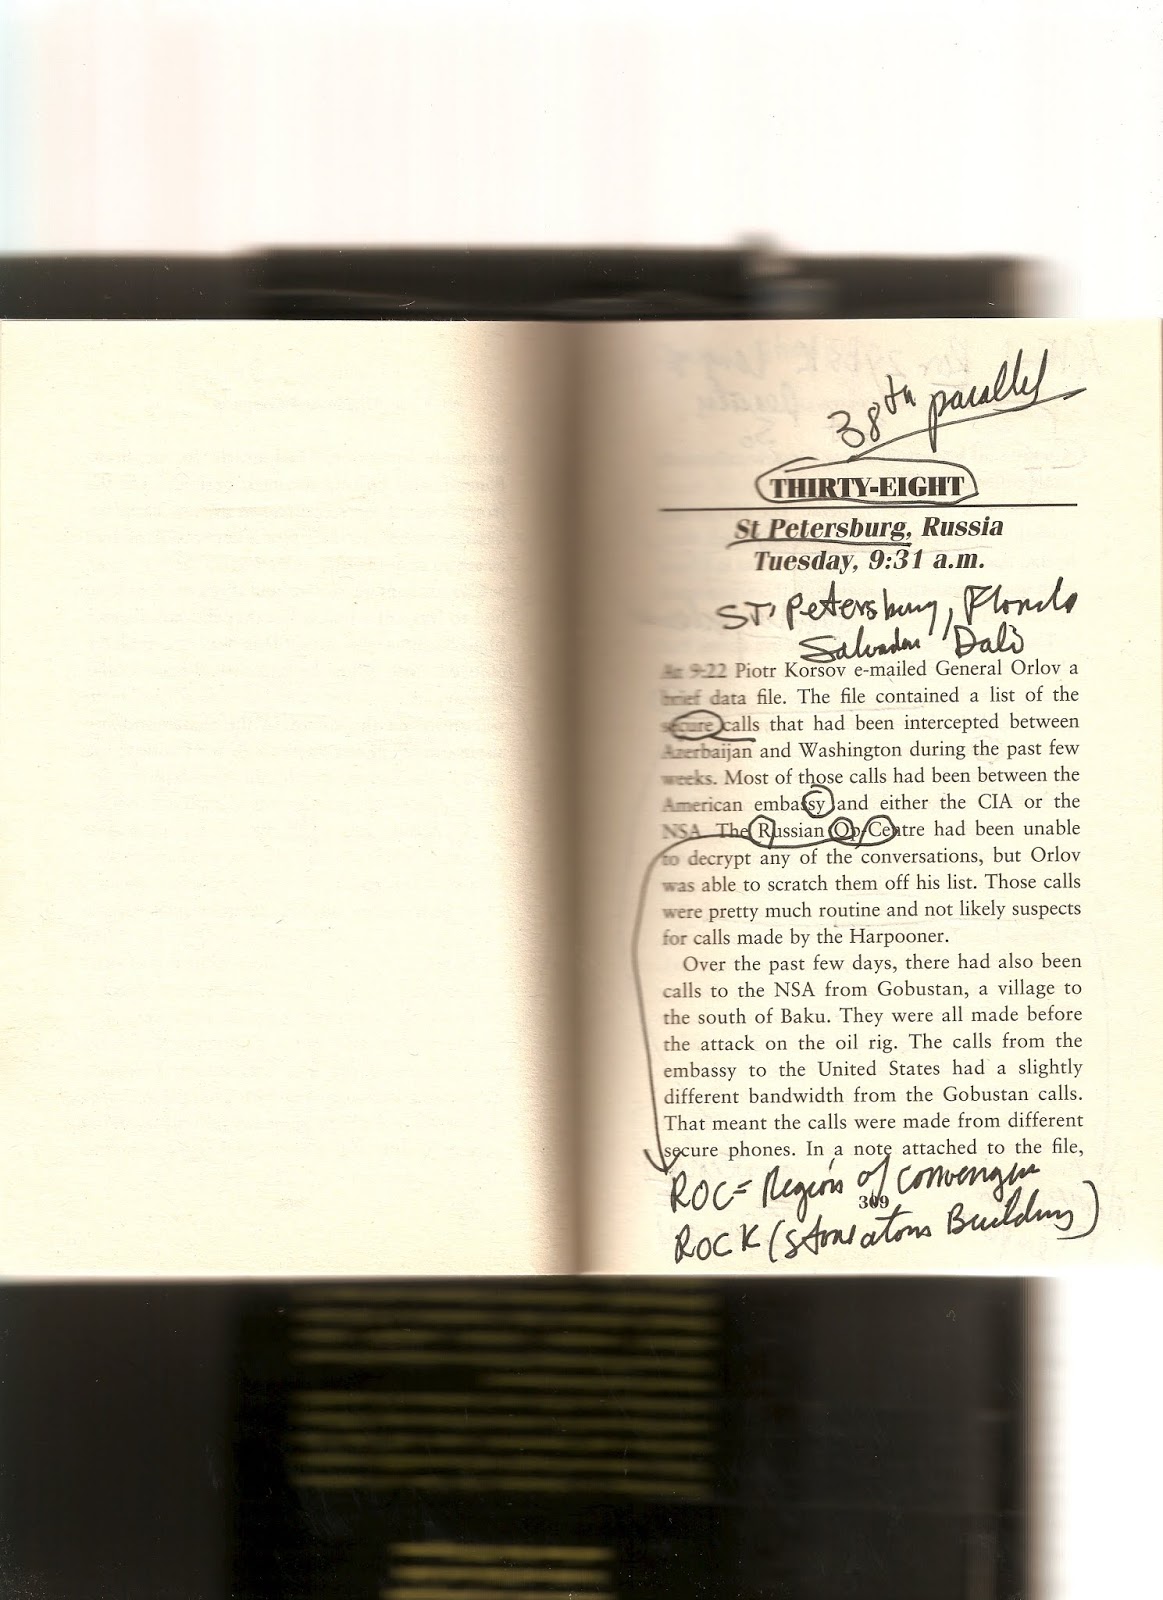 38th parallel
THIRTY-EIGHT
St Petersburg, Russia
Tuesday, 9:31 a.m.
ST. Petersburg, Florida
Salvador Dali
At 9:22 Piotr Korsov e-mailed General Orlov a
brief data file. The file contained a list of the
secure calls that had been intercepted between
Azerbaijan and Washington during the past few
weeks. Most of those calls had been between the
American embassy and either the CIA or the
NSA. The Russian Op-Centre had been unable
to decrypt any of the conversations, but Orlov
was able to scratch them off his list. Those calls
were pretty much routine and not likely suspects
for calls made by the Harpooner.
Over the past few days, there had also been
calls to the NSA from Gobustan, a village to
the south of Baku. They were all made before
the attack on the oil rig. The calls from the
embassy to the United States had a slightly
different bandwidth from the Gobustan calls.
That meant the calls were made from different
secure phones. In a note attached to the file,
ROC = Region of Convergence
309
ROCK ( Building)